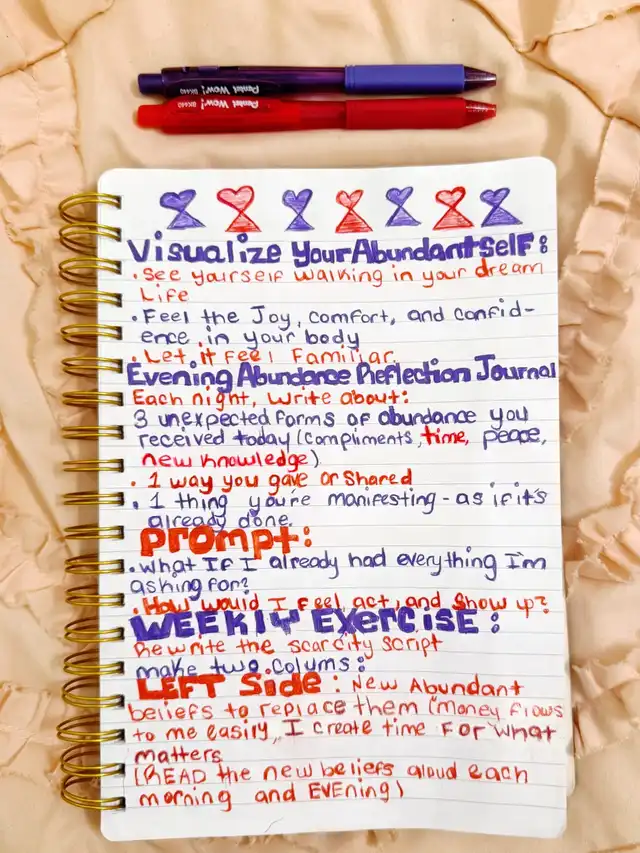 Pentel Wow! BK440
Pentel Wow! BK440
Visualize Your Abundant Self:
• See yourself walking in your dream
Life
• Feel the Joy, comfort, and confid-
ence in your body
• Let it Feel Familiar.
Evening Abundance Reflection Journal
Each night, write about:
3 unexpected forms of abundance you
received today (compliments, time, peace,
new knowledge)
• 1 way you gave or Shared
• 1 thing you're manifesting - as if it's
already done.
Prompt:
• what If I already had everything I'm
asking for?
• How would I Feel act, and Show up?
WEEKLY Exercise:
Rewrite the scarcity script
make two colums:
LEFT Side: New Abundant
beliefs to replace them ("money flows
to me easily, I create time For what
matters
(READ the new beliefs aloud each
morning and EVENING)